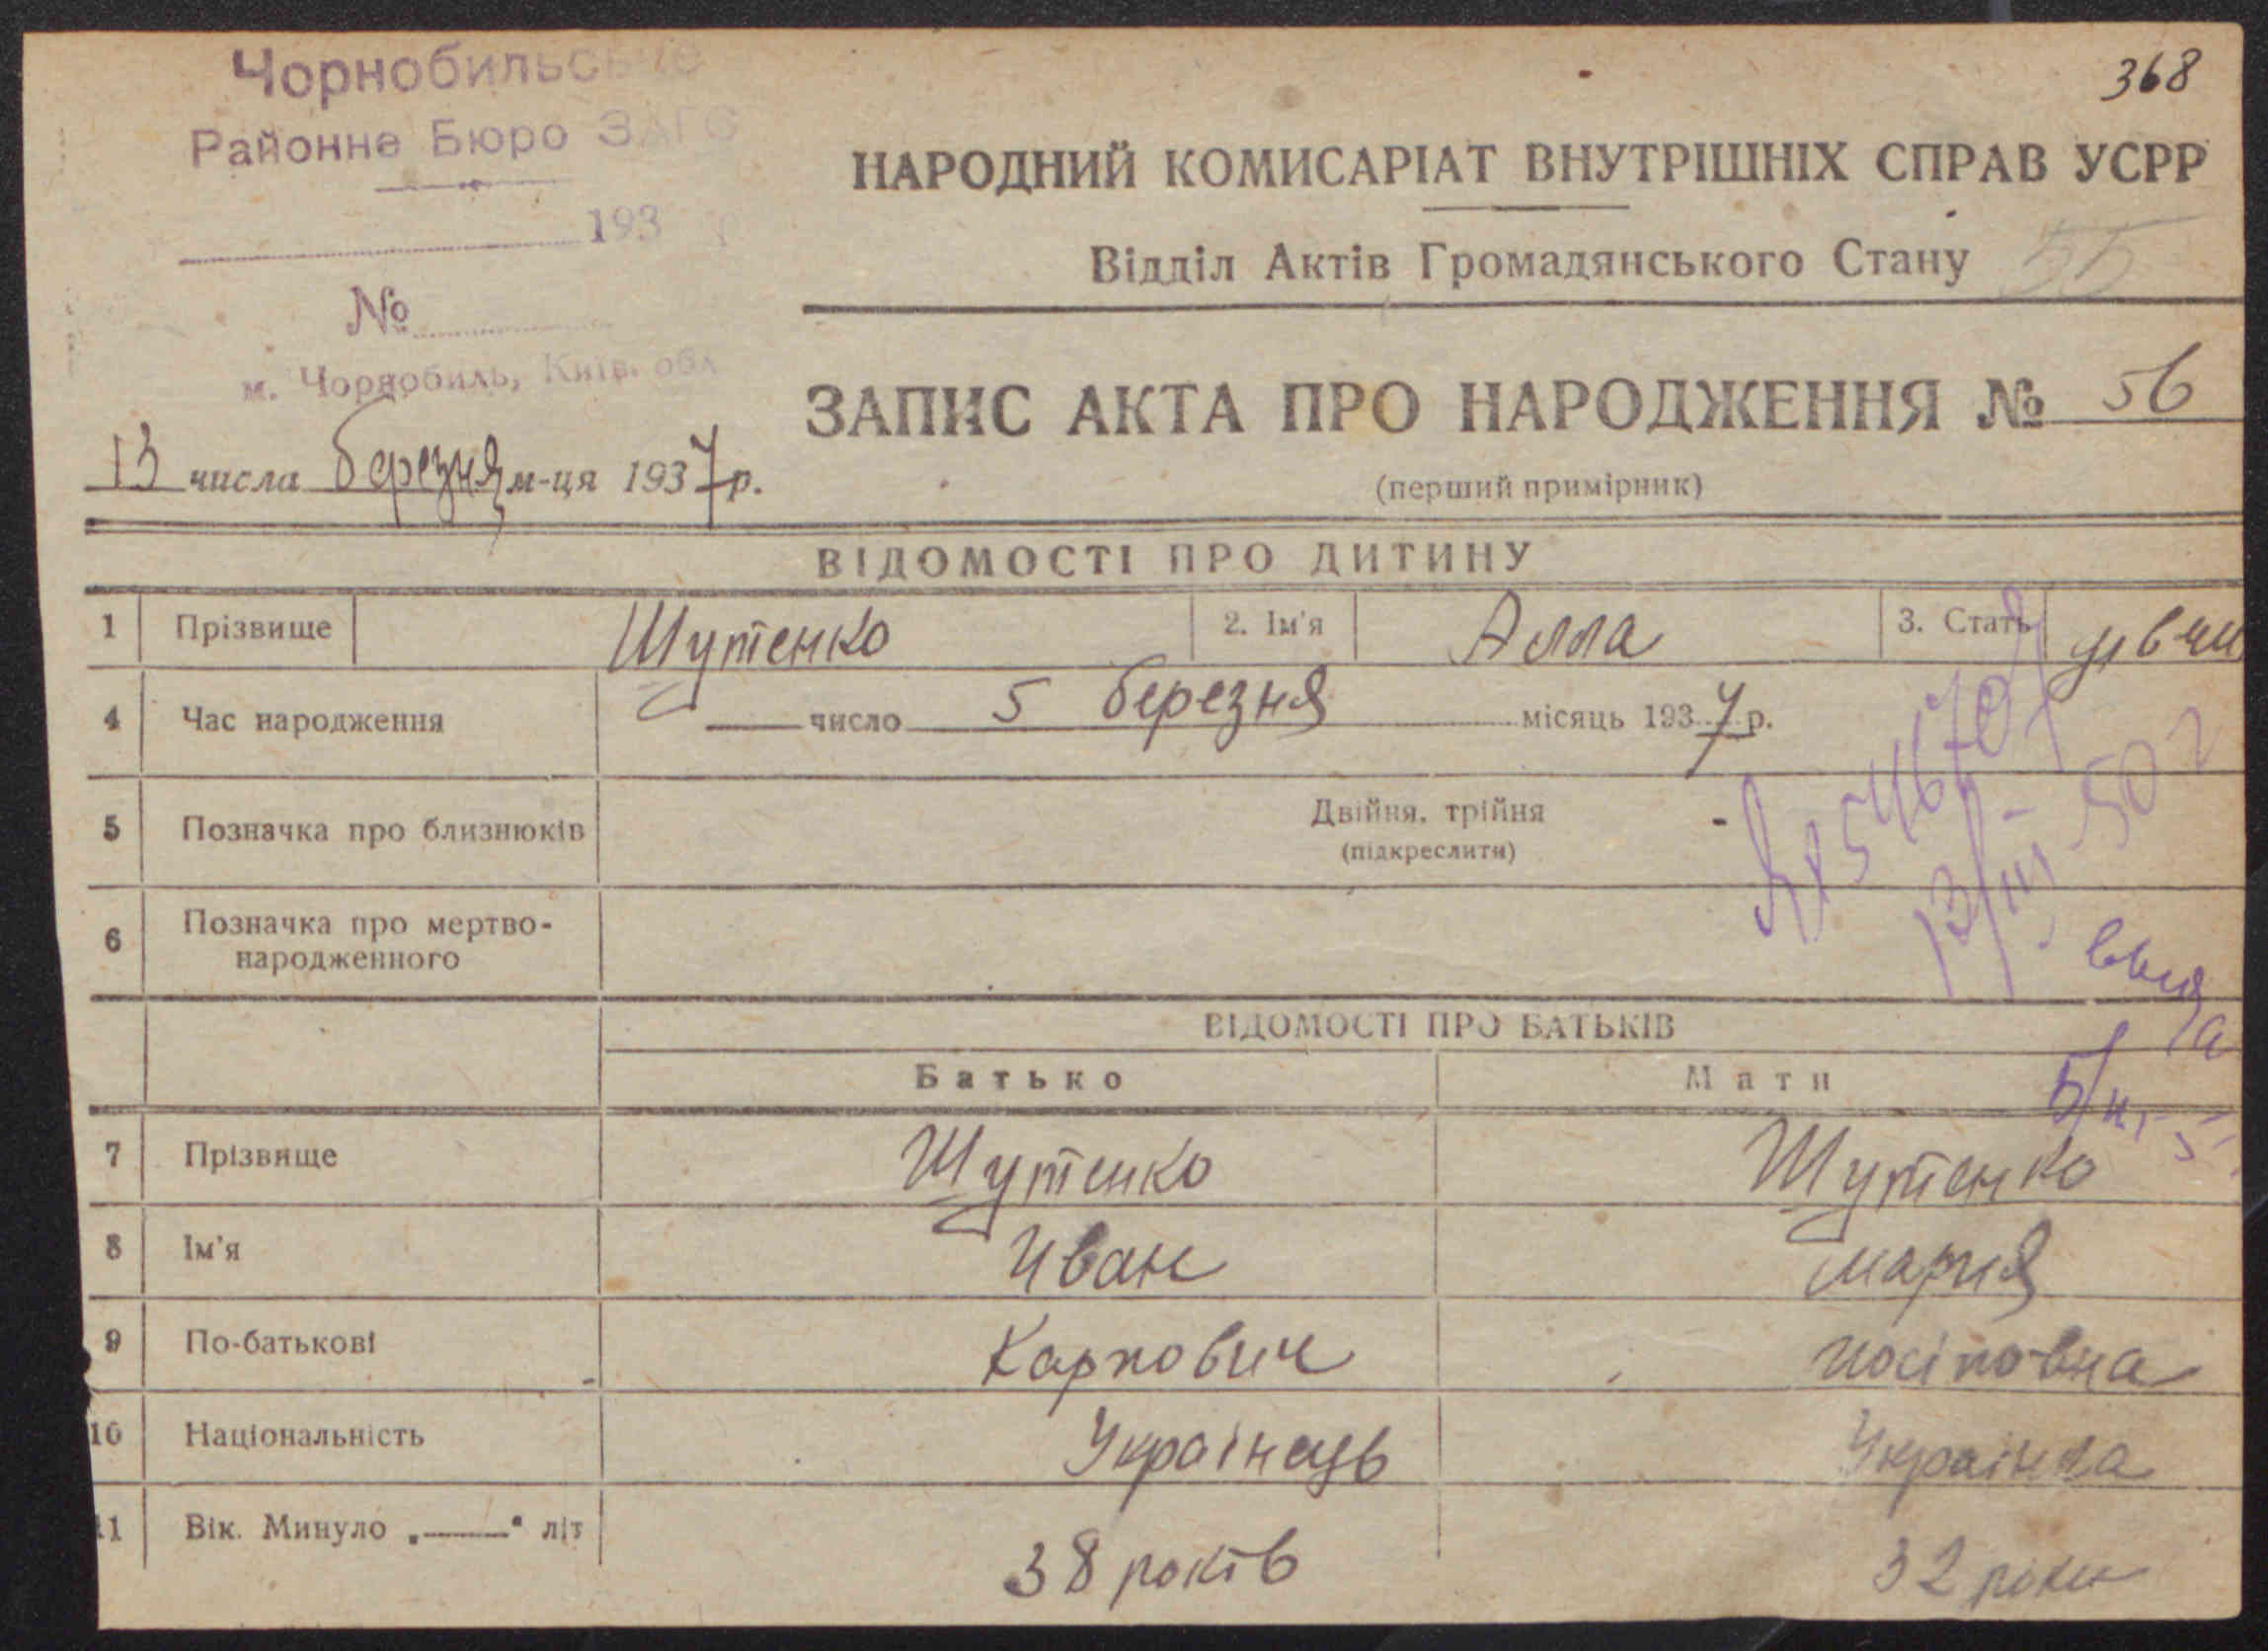 368
Чорнобильське
Районне Бюро ЗАГС
193 р
№
м. Чорнобиль, Київ. обл
13 числа березня м-ця 1937 р.
НАРОДНИЙ КОМИСАРІАТ ВНУТРІШНІХ СПРАВ УСРР
Відділ Актів Громадянського Стану 55
ЗАПИС АКТА ПРО НАРОДЖЕННЯ № 56
(перший примірник)
ВІДОМОСТІ ПРО ДИТИНУ
1 Прізвище Шутенко 2. Ім'я Алла 3. Стать дівчи
4 Час народження число 5 березня місяць 1937 р.
5 Позначка про близнюків Двійня, трійня -
(підкреслити)
6 Позначка про мертво-
народженного
13/III 50 г
ВІДОМОСТІ ПРО БАТЬКІВ
Батько Мати
7 Прізвище Шутенко Шутенко
8 Ім'я Иван Мария
9 По-батькові Карпович Иосіповна
10 Національність Украінець Украінка
11 Вік. Минуло „——“ літ 38 років 32 роки